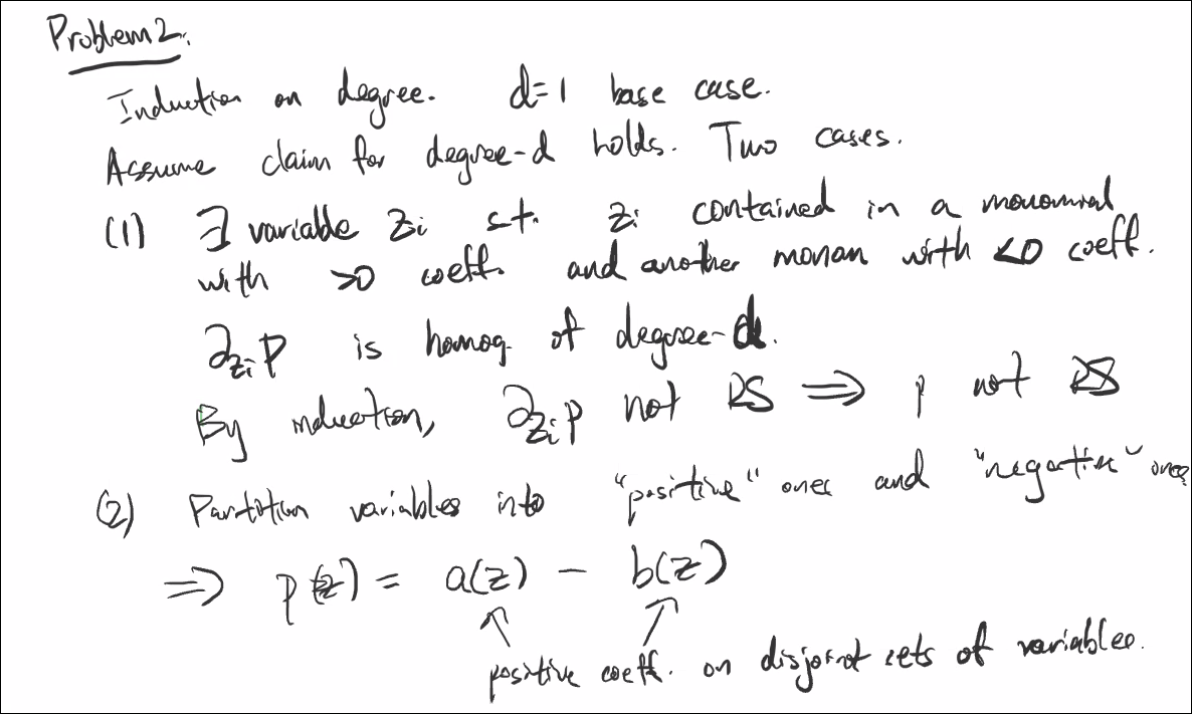 Problem 2.
Induction on degree. d=1 base case.
Assume claim for degree-d holds. Two cases.
(1) ∃ variable z_i s.t. z_i contained in a monomial
with >0 coeff. and another monom with <0 coeff.
∂_{z_i} P is homog. of degree-d.
By induction, ∂_{z_i} p not RS ⟹ p not RS
(2) Partition variables into "positive" ones and "negative" ones
⟹ p(z) = a(z) − b(z)
positive coeff. on disjoint sets of variables.